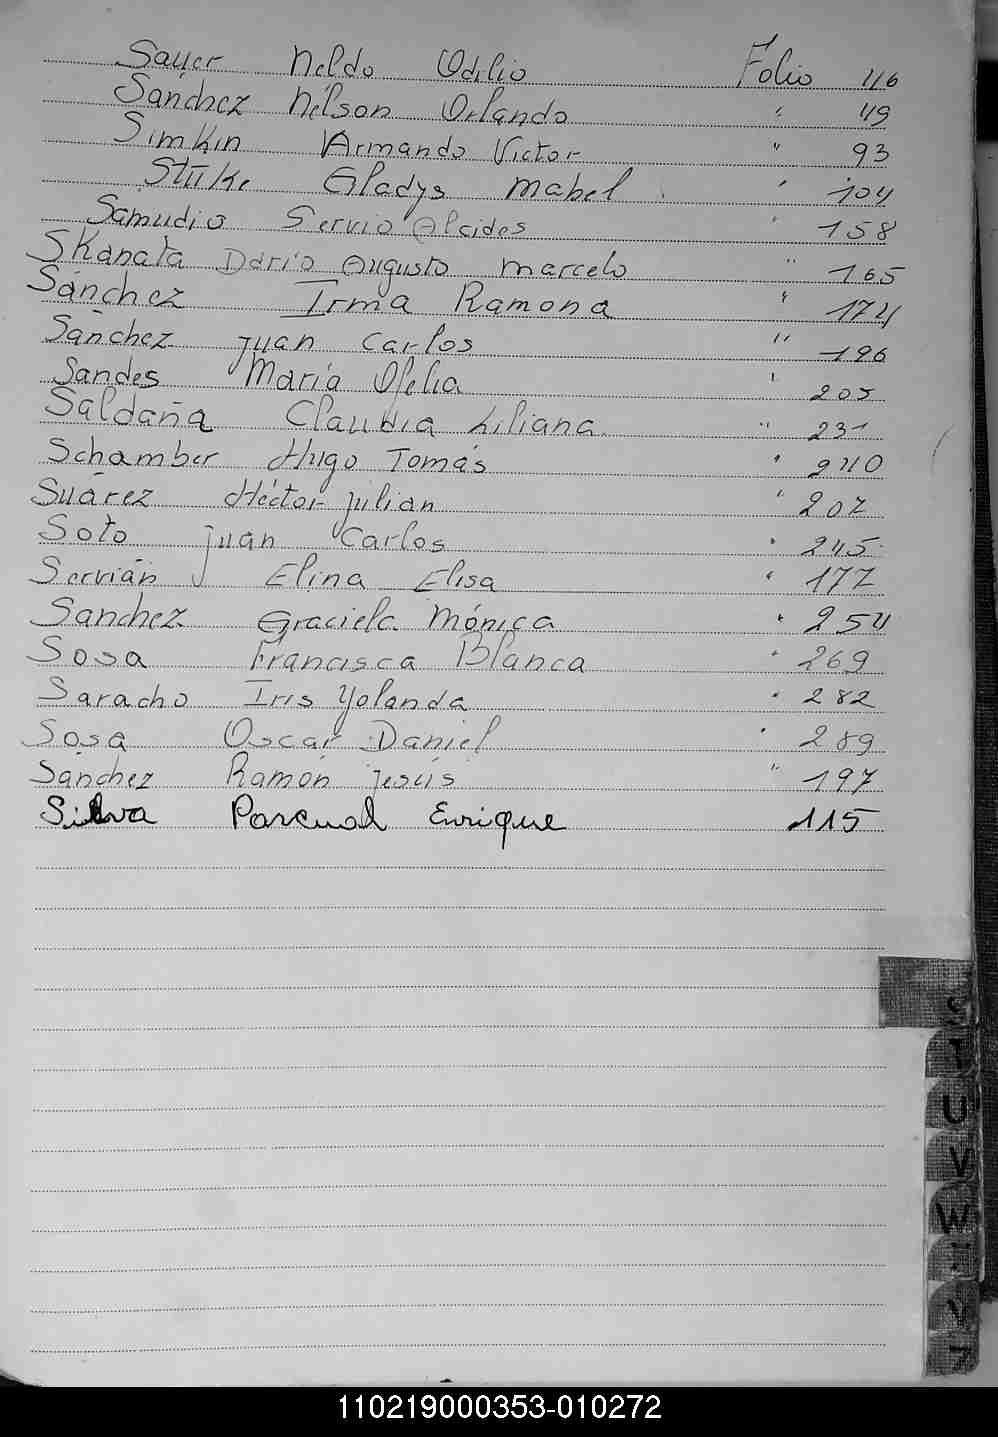 Sauer Neldo Odilio Folio 46
Sanchez Nélson Orlando " 49
Simkin Armando Victor " 93
Stüke Gladys Mabel " 104
Samudio Servio Alcides " 158
Skanata Dario Augusto Marcelo " 165
Sánchez Irma Ramona " 174
Sánchez Juan Carlos " 196
Sandes María Ofelia " 205
Saldaña Claudia Liliana " 231
Schamber Hugo Tomás " 240
Suárez Héctor Julian " 207
Soto Juan Carlos " 245
Servián Elina Elisa " 177
Sanchez Graciela Mónica " 254
Sosa Francisca Blanca " 269
Saracho Iris Yolanda " 282
Sosa Oscar Daniel " 289
Sánchez Ramón Jesús " 197
Silva Pascual Enrique 115
S
T
U
V
W
Y
Z
110219000353-010272